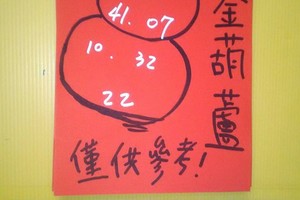 金葫蘆
41. 07
10. 32
22
僅供參考!